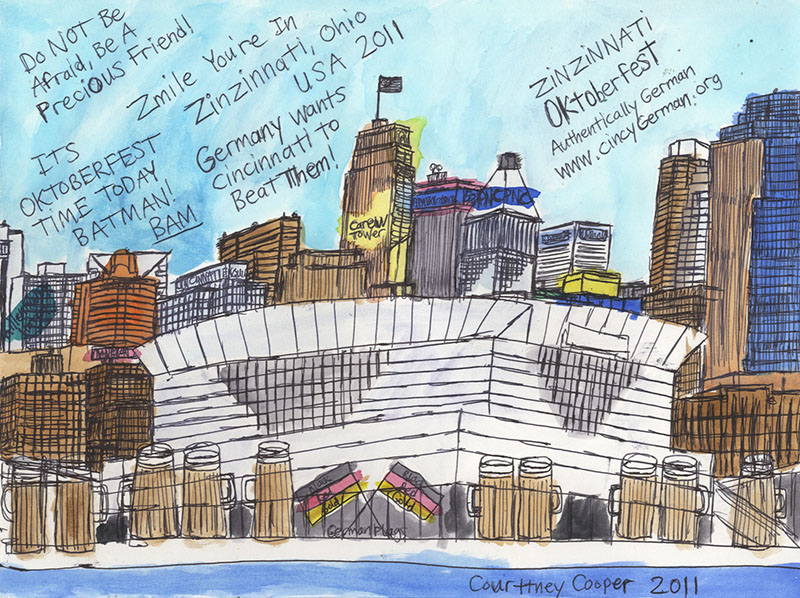 Do Not Be
Afraid, Be A
Precious Friend!
Zmile You're In
Zinzinnati, Ohio
USA 2011
Germany Wants
Cincinnati to
Beat Them!
ITS
OKTOBERFEST
TIME TODAY
BATMAN!
BAM
ZINZINNATI
Oktoberfest
Authentically German
www.CincyGerman.org
Carew
Tower
PNC PNC
Black
Red
Gold
Black
Red
Gold
German Flags
Courttney Cooper 2011